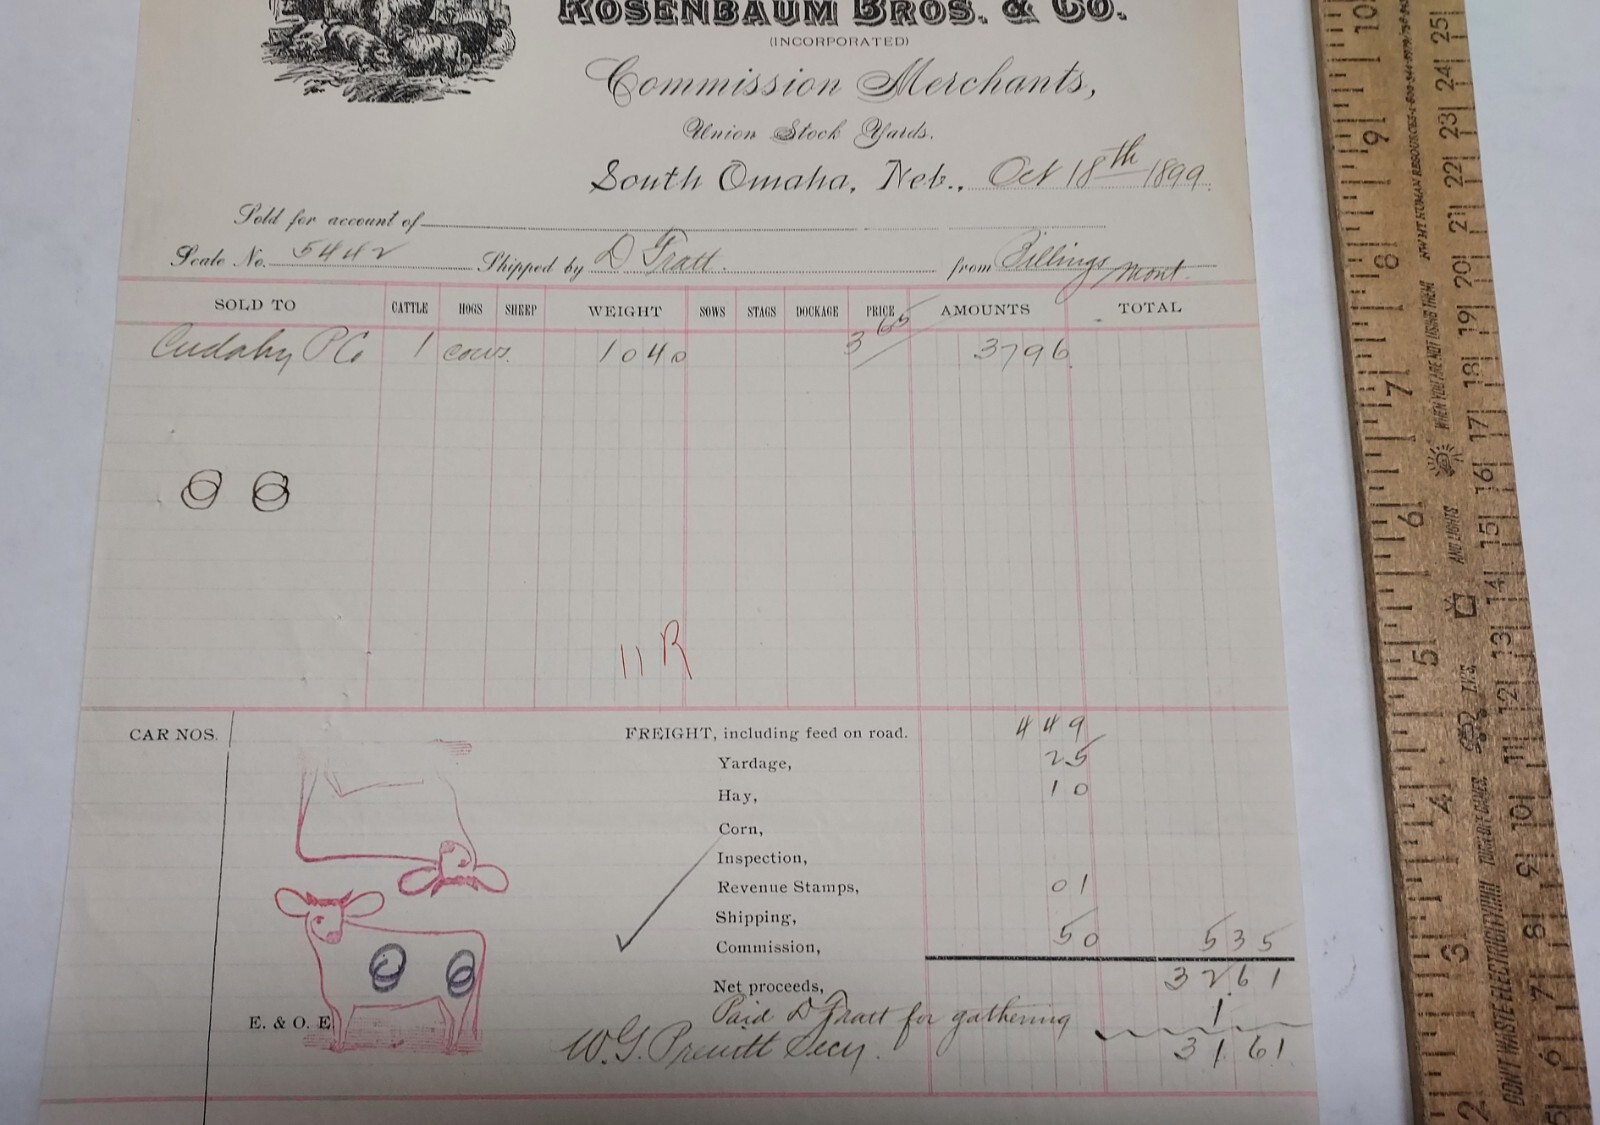 ROSENBAUM BROS. & CO.
(INCORPORATED)
Commission Merchants,
Union Stock Yards.
South Omaha, Neb., Oct 18th 1899
Sold for account of
Scale No. 5442 Shipped by D Fratt. from Billings Mont.
SOLD TO CATTLE HOGS SHEEP WEIGHT SOWS STAGS DOCKAGE PRICE AMOUNTS TOTAL
Cudahy P Co 1 cows. 1040 3 65 3796
11 R
CAR NOS. FREIGHT, including feed on road. 449
Yardage, 25
Hay, 10
Corn,
Inspection,
Revenue Stamps, 01
Shipping,
Commission, 50 535
Net proceeds, 3261
Paid D Fratt for gathering 1
E. & O. E
W. G. Prewitt Secy. 3161
10 9 8 7 6 5 4 3 2
25 24 23 22 21 20 19 18 17 16 15 14 13 12 11 10 9 8 7 6 5
DON'T WASTE ELECTRICITY!!!!! TURN OFF GAMES, T.V.'S, AND LIGHTS WHEN YOU ARE NOT USING THEM